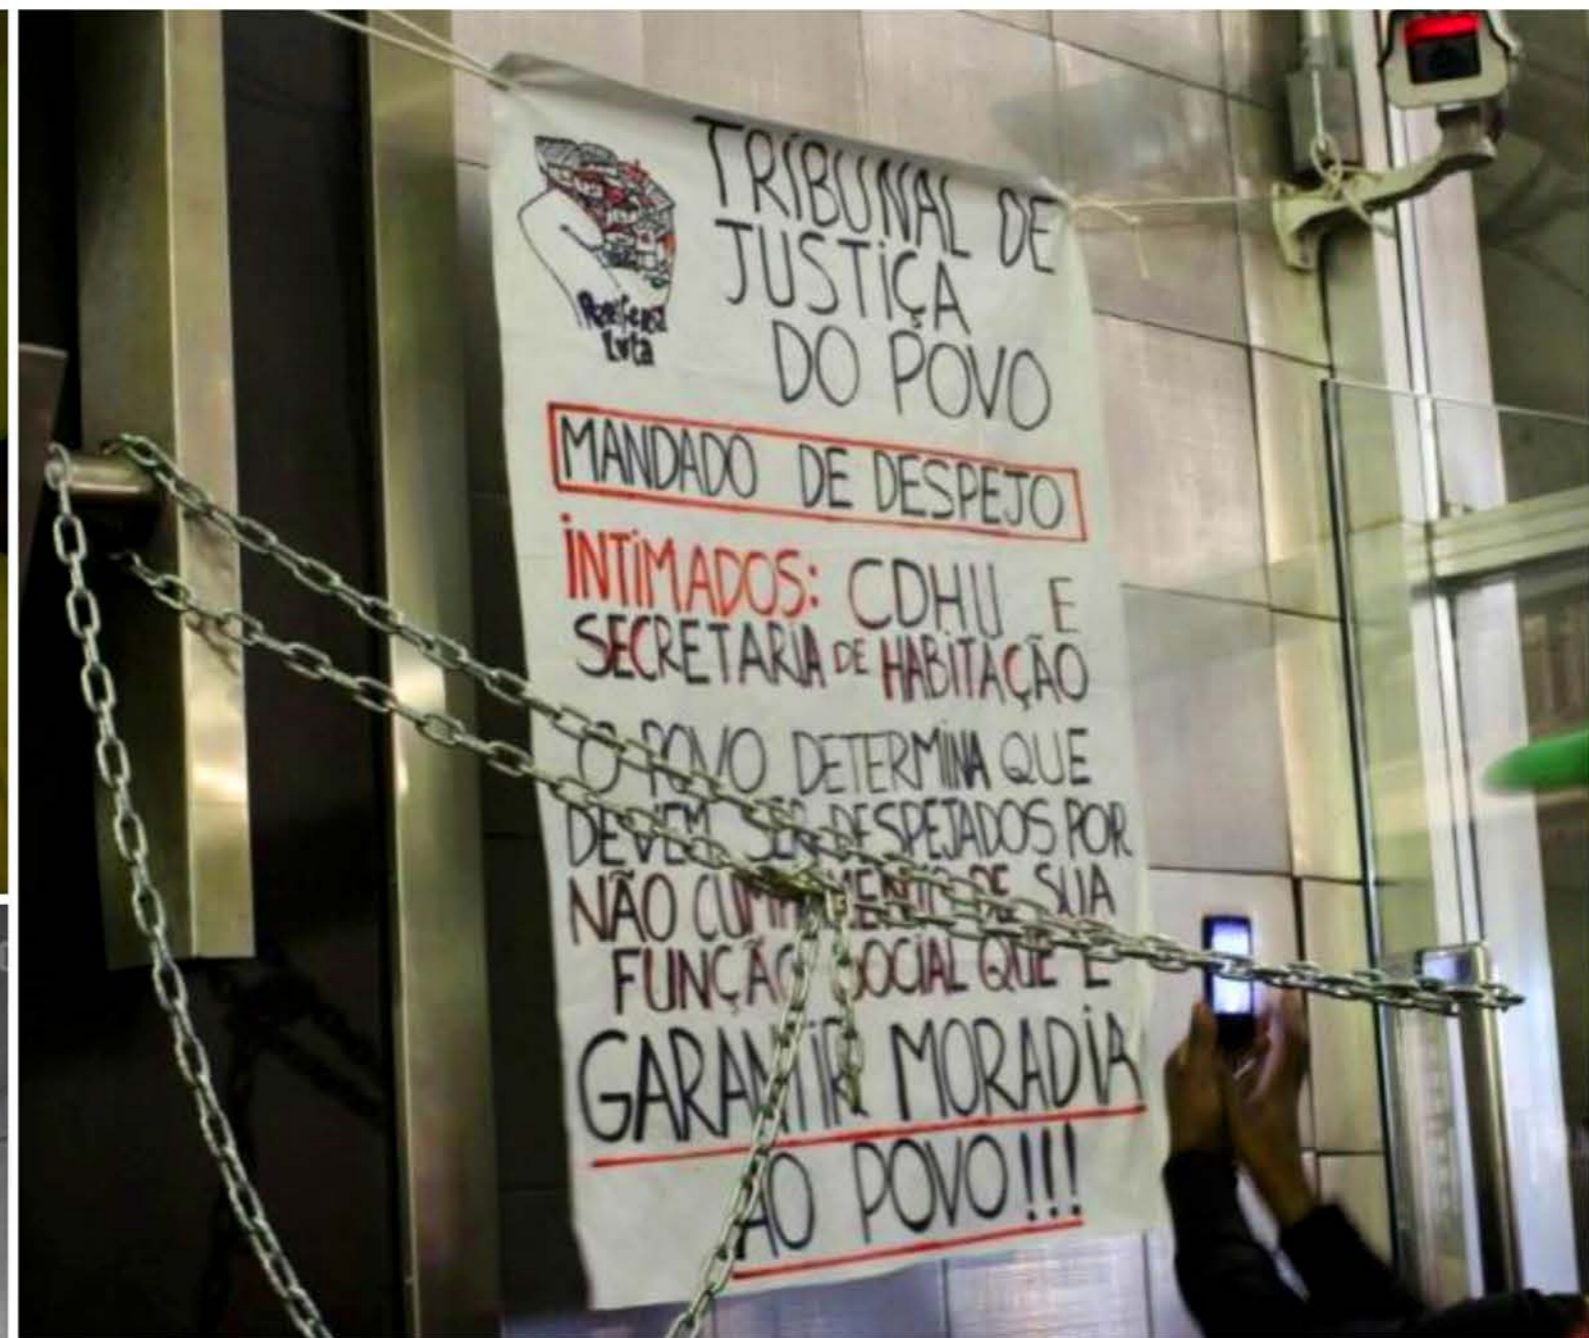 TRIBUNAL DE
JUSTIÇA
DO POVO
Periferia
Luta
MANDADO DE DESPEJO
INTIMADOS: CDHU E
SECRETARIA DE HABITAÇÃO
O POVO DETERMINA QUE
DEVEM SER DESPEJADOS POR
NÃO CUMPRIMENTO DE SUA
FUNÇÃO SOCIAL QUE É
GARANTIR MORADIA
AO POVO!!!